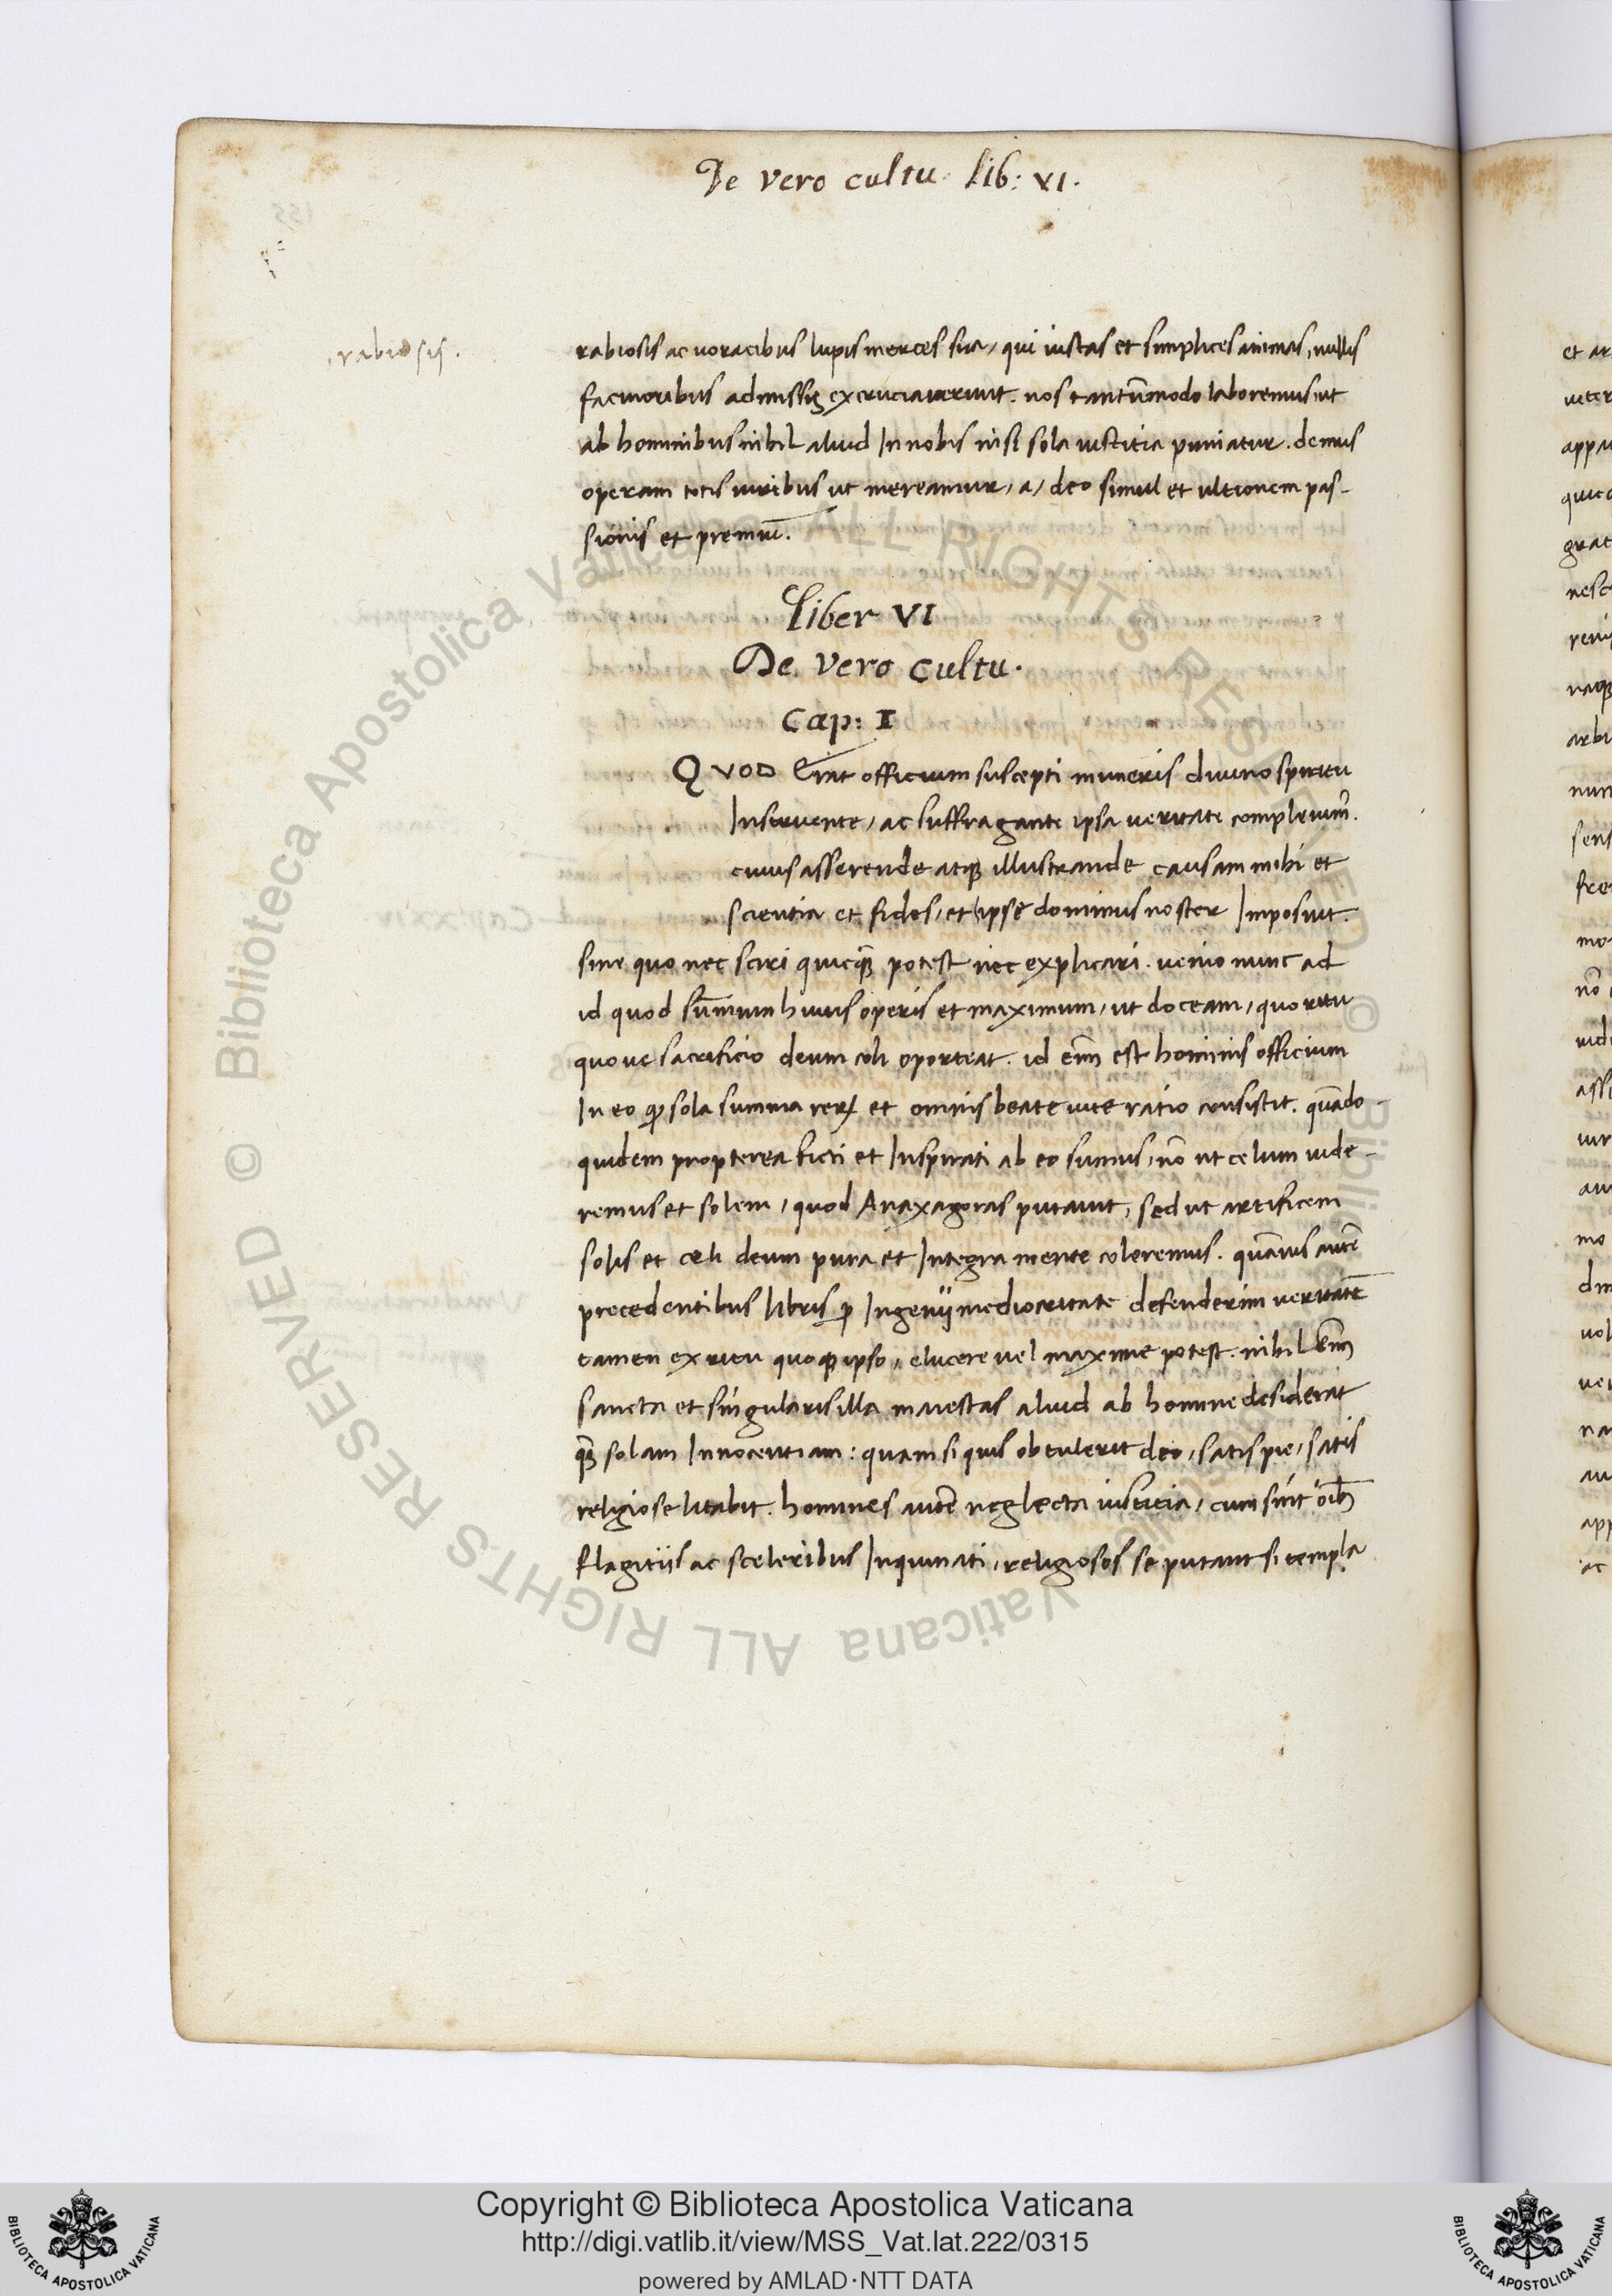 De vero cultu. lib: VI.
rabiosis.
rabiosis ac uoracibus lupis merces sua, qui iustas et simplices animas, nullis
facinoribus admissis excruciauerunt. nos tantūmodo laboremus, ut
ab hominibus nihil aliud In nobis nisi sola iustitia puniatur. demus
operam totis uiribus ut mereamur, a, deo simul et ultionem pas-
sionis et premiū.
Liber VI
De vero cultu.
Cap: I
QVOD Erat officium suscepti muneris diuino spiritu
Instruente, ac suffragante ipsa ueritate compleuim̄.
cuius asserende atq illustrande causam mihi et
scientia et fides, et ipse dominus noster Imposuit.
sine quo nec sciri quicq̄ potest nec explicari. uenio nunc ad
id quod sūmum huius operis et maximum, ut doceam, quo ritu
quoue sacrificio deum coli oporteat. id eīm est hominis officium
In eo q sola summa rerꝝ et omnis beate uite ratio consistit. quādo-
quidem propterea ficti et Inspirati ab eo sumus, nō ut celum uide-
remus et solem, quod Anaxagoras putauit, sed ut artificem
solis et celi deum pura et Integra mente coleremus. quāuis autē
precedentibus libris ꝓ Ingenij mediocritate defenderim ueritatē
tamen ex ritu quoq ipso, elucere uel maxime potest. nihil eīm
sancta et singularis illa maiestas aliud ab homine desiderat
q̄ solam Innocentiam: quam si quis obtulerit deo, satis pie, satis
religiose litabit. homines autē neglecta iustitia, cum sint oīb
flagitijs ac sceleribus Inquinati, religiosos se putant si templa
Copyright © Biblioteca Apostolica Vaticana
http://digi.vatlib.it/view/MSS_Vat.lat.222/0315
powered by AMLAD·NTT DATA
BIBLIOTECA APOSTOLICA VATICANA
BIBLIOTECA APOSTOLICA VATICANA
© Biblioteca Apostolica Vaticana ALL RIGHTS RESERVED
© Biblioteca Apostolica Vaticana ALL RIGHTS RESERVED